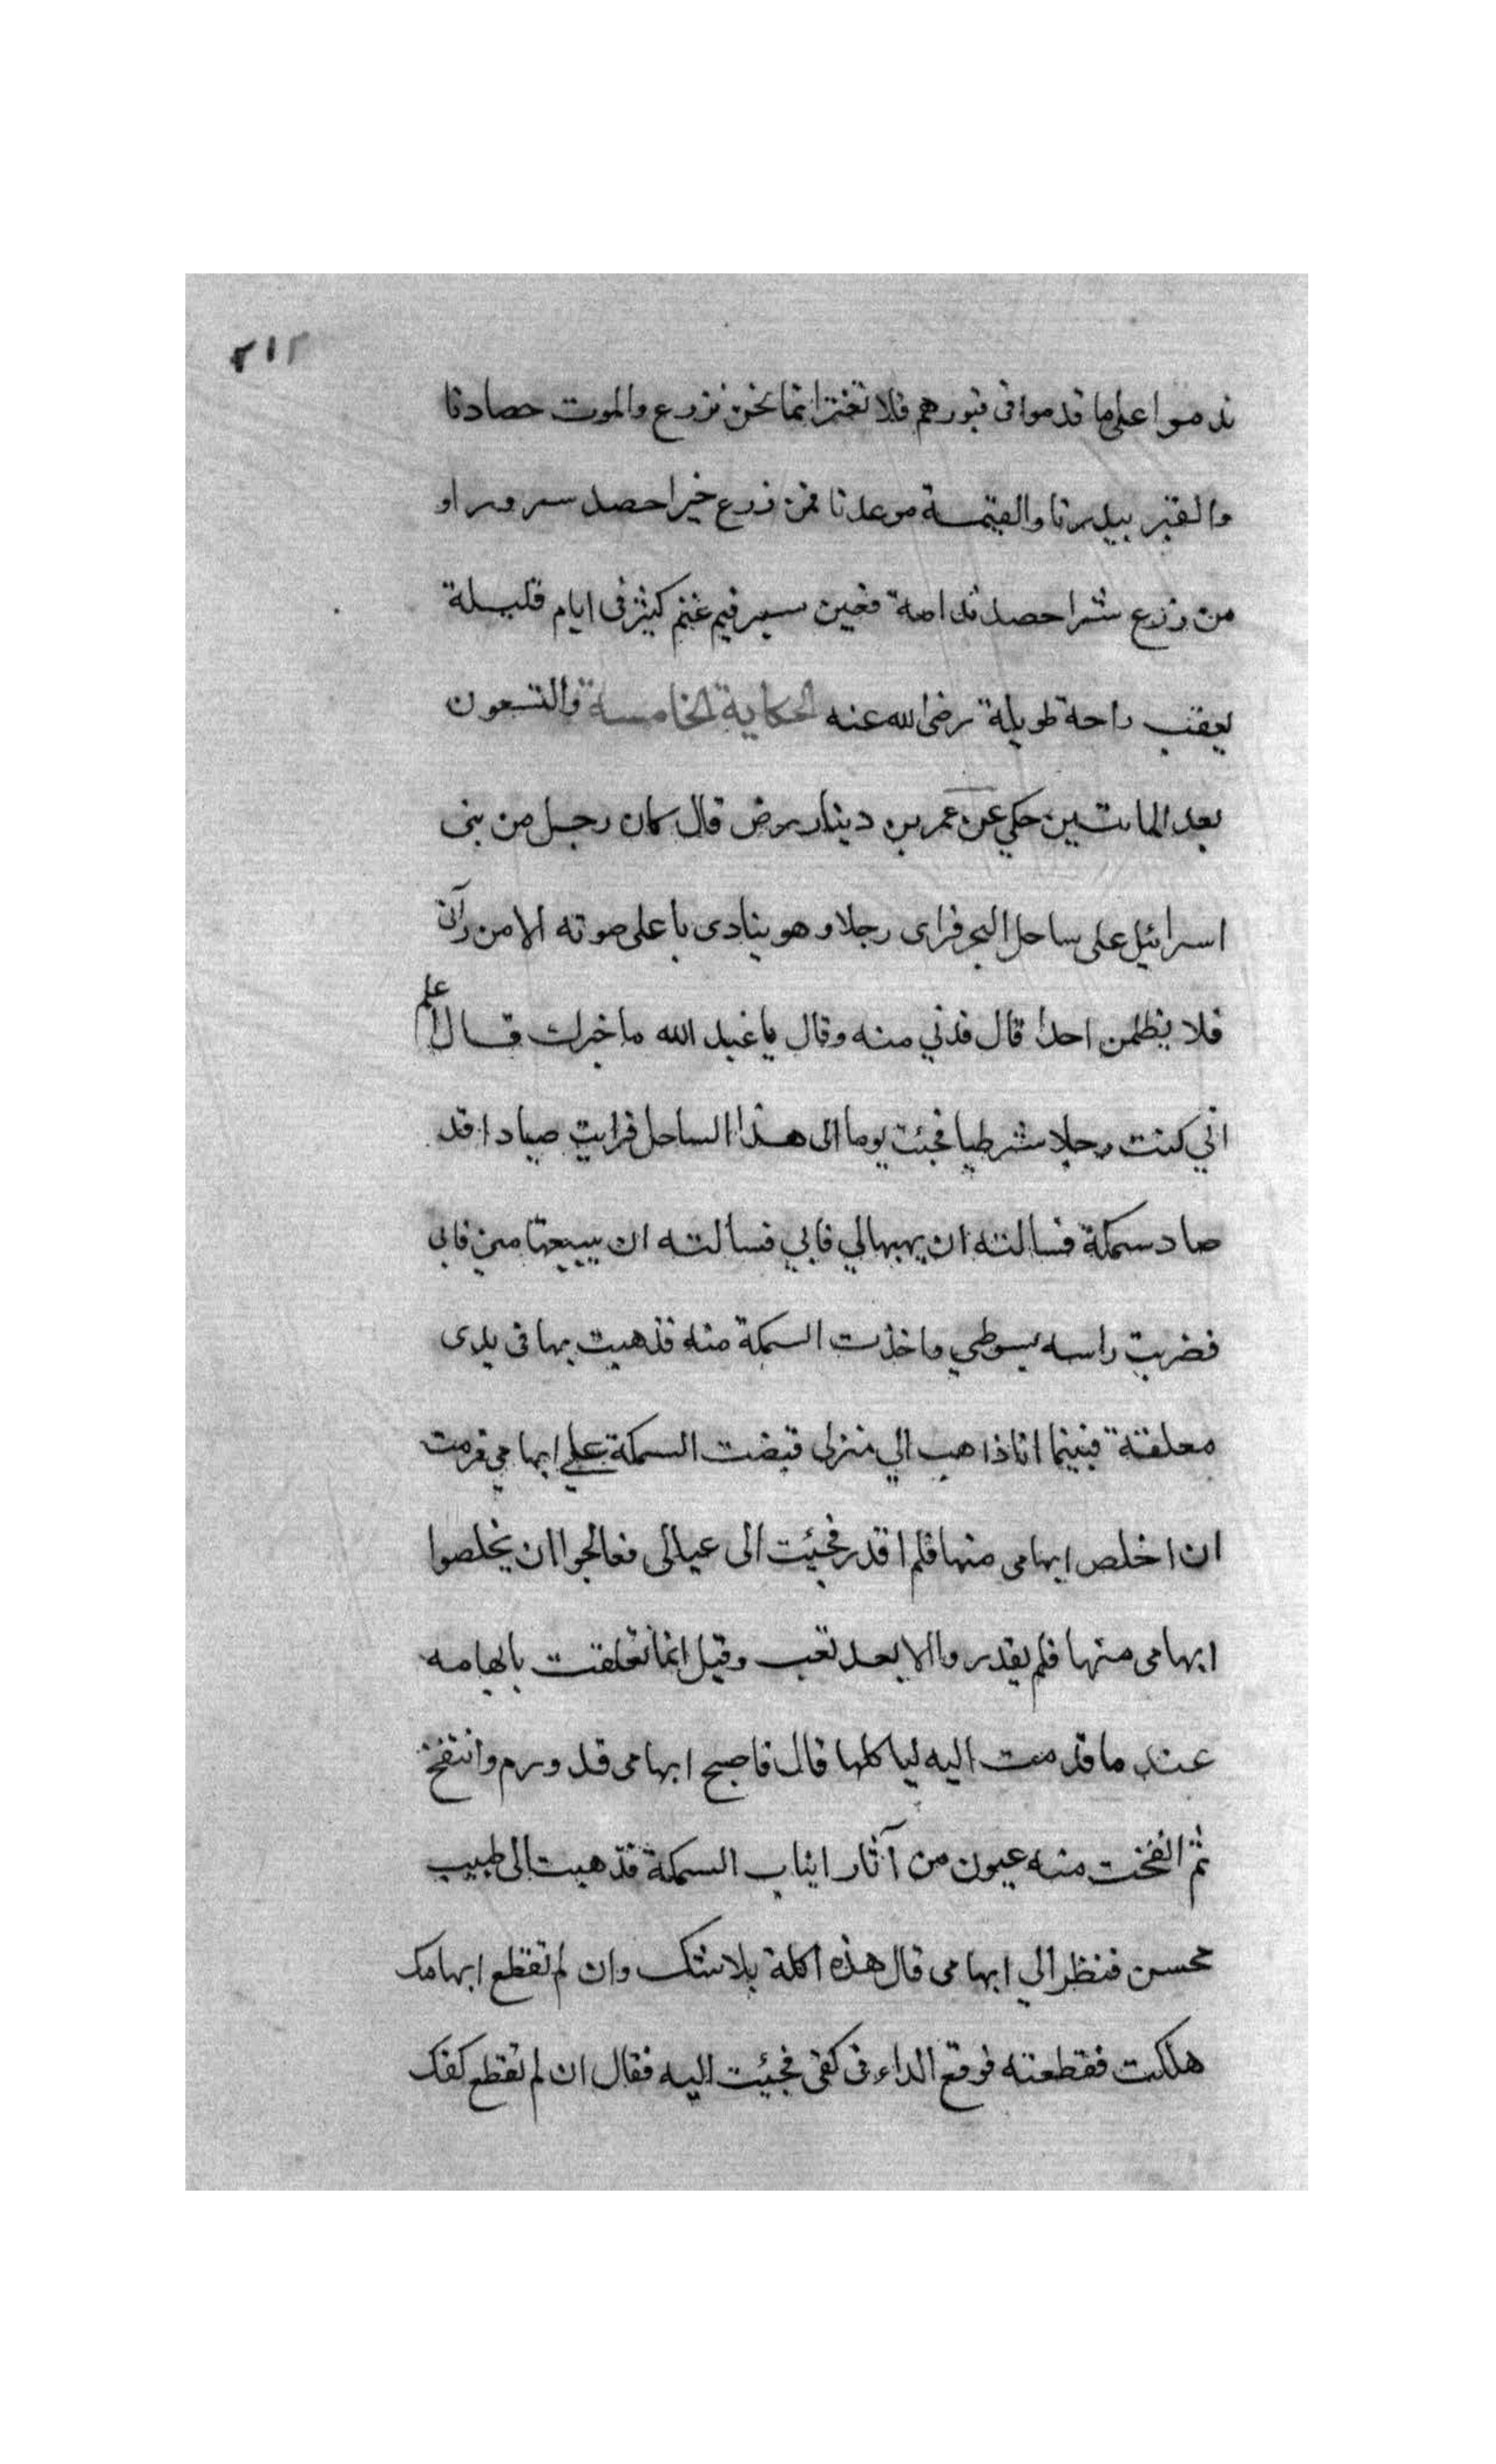 ٢١٢
ندموا على ما قدموا فى قبورهم فلا تغتر انما نحن نزرع والموت حصادنا
والقبر بيدرنا والقيمة موعدنا فمن زرع خيرا حصد سرورا و
من زرع شرا حصد ندامة فحين سير فيم غنم كثير فى ايام قليلة
يعقب راحة طويلة رضى الله عنه الحكاية الخامسة والتسعون
بعد المائتين حكي عن عمر بن دينار رض قال كان رجل من بنى
اسرائيل على ساحل البحر فراى رجلا وهو ينادى باعلى صوته الا من رآنى
فلا يظلمن احدا قال فدني منه وقال يا عبد الله ما خبرك قال اعلم
اني كنت رجلا شرطيا فجئت يوما الى هذا الساحل فرايت صيادا قد
صاد سمكة فسالته ان يهبها لي فابي فسالته ان يبيعها مني فابى
فضربت راسه بسوطي واخذت السمكة منه فذهبت بها فى يدى
معلقة فبينما انا ذاهب الي منزلى قبضت السمكة علي ابهامي فرمت
ان اخلص ابهامى منها فلم اقدر فجيئت الى عيالى فعالجوا ان يخلصوا
ابهامى منها فلم يقدروا الا بعد تعب وقيل انما تعلقت بابهامه
عند ما قدمت اليه لياكلها قال فاصبح ابهامى قد ورم وانتفخ
ثم انفخت منه عيون من آثار انياب السمكة فذهبت الى طبيب
محسن فنظر الي ابهامى قال هذه اكلة بلا شك وان لم تقطع ابهامك
هلكت فقطعته فوقع الداء فى كفى فجيئت اليه فقال ان لم تقطع كفك